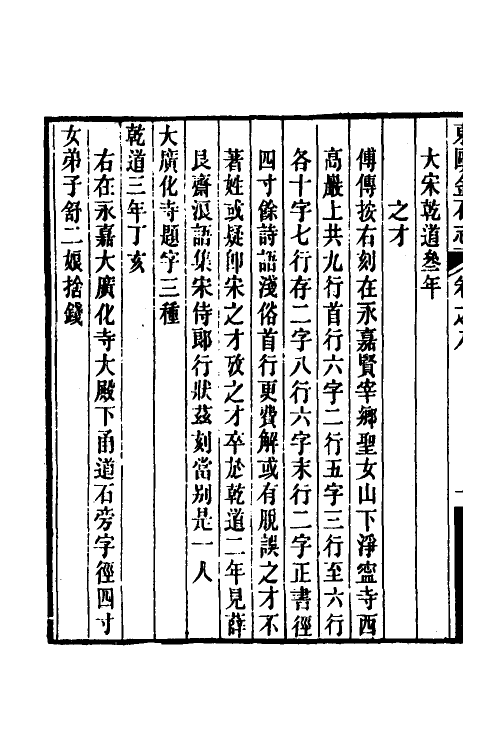 東甌金石志 卷之八
大宋乾道叄年
之才
傅傳按右刻在永嘉賢宰鄉聖女山下淨寍寺西
高巖上共九行首行六字二行五字三行至六行
各十字七行存二字八行六字末行二字正書徑
四寸餘詩語淺俗首行更費解或有脫誤之才不
著姓或疑卽宋之才攷之才卒於乾道二年見薛
艮齋浪語集宋侍郎行狀茲刻當别是一人
大廣化寺題字三種
乾道三年丁亥
右在永嘉大廣化寺大殿下甬道石旁字徑四寸
女弟子舒二娘捨錢